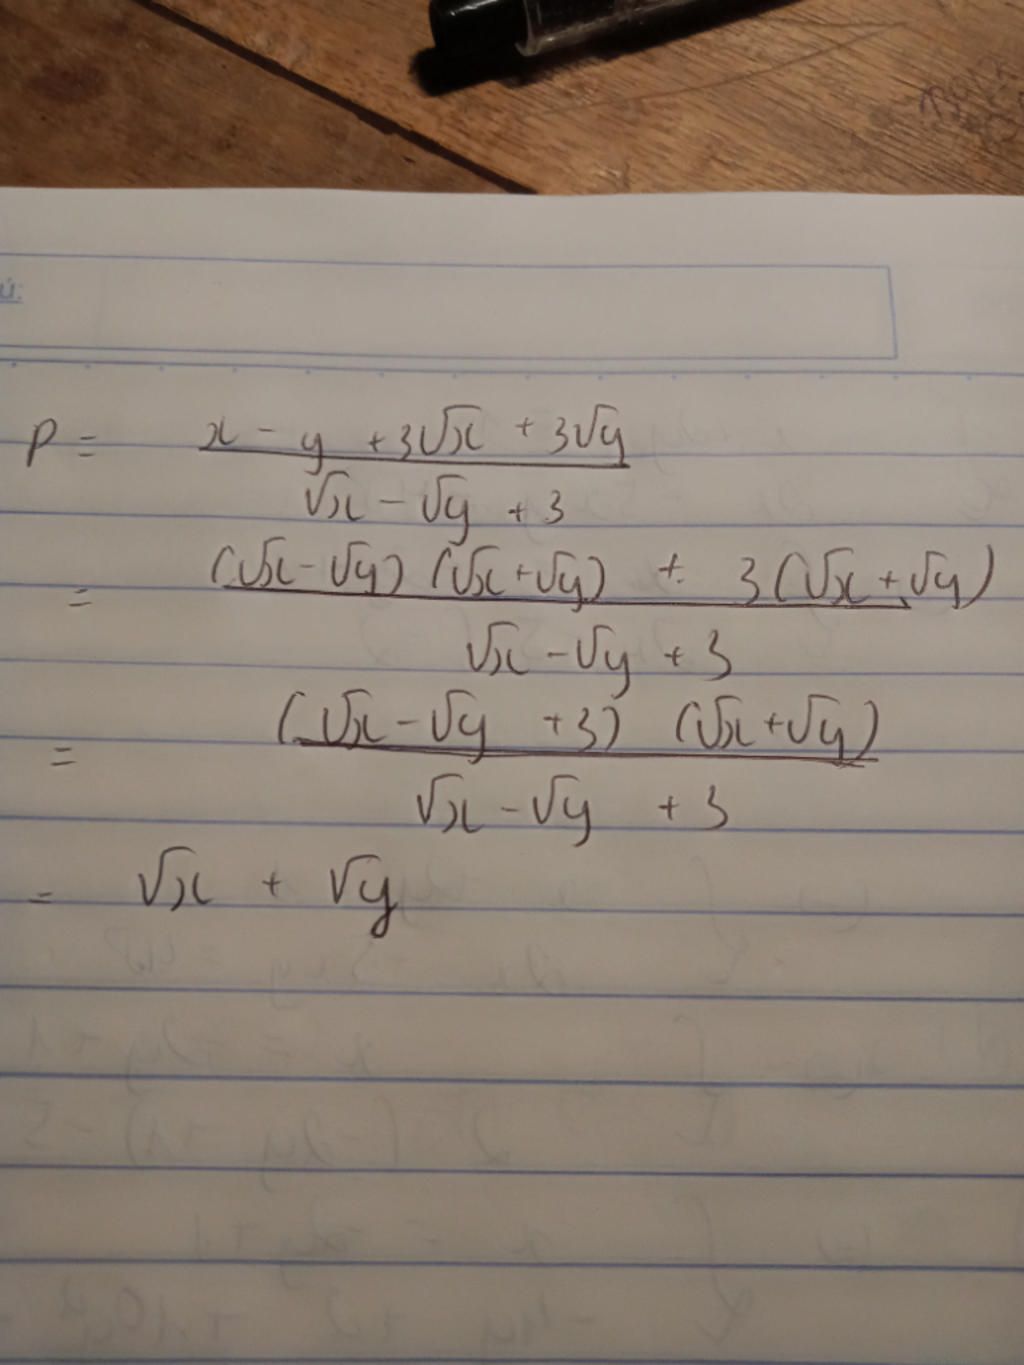 ú:
P = x - y + 3√x + 3√y
√x - √y + 3
= (√x - √y) (√x + √y) + 3(√x + √y)
√x - √y + 3
= (√x - √y + 3) (√x + √y)
√x - √y + 3
= √x + √y